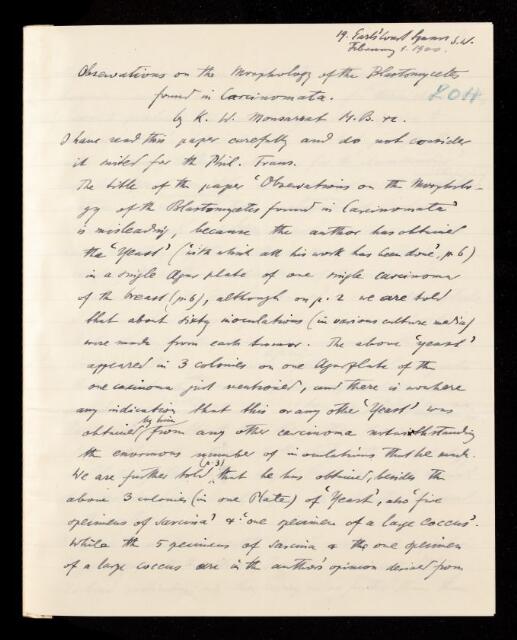 19. Earl's Court Square S.W.
February 1. 1900.
Observations on the Morphology of the Blastomycetes
found in Carcinomata.
by K. W. Monsarrat M.B. &c.
I have read this paper carefully and do not consider
it suited for the Phil. Trans.
The title of the paper 'Observations on the Morpholo-
gy of the Blastomycetes found in Carcinomata'
is misleading, because the author has obtained
the 'Yeast' ('with which all his work has been done', p. 6)
in a single Agar plate of one single carcinoma
of the breast (p. 6), although on p. 2 we are told
that about sixty inoculations (in various culture media)
were made from each tumour. The above 'yeast'
appeared in 3 colonies on one Agar plate of the
one carcinoma just mentioned, and there is nowhere
any indication that this or any other 'Yeast' was
obtained by him from any other carcinoma notwithstanding
the enormous number of inoculations that he made.
We are further told (p. 3), that he has obtained, besides the
above 3 colonies (in one Plate) of 'Yeast', also 'five
specimens of Sarcina' & 'one specimen of a large Coccus'.
While the 5 specimens of Sarcina & the one specimen
of a large coccus are in the author's opinion derived from